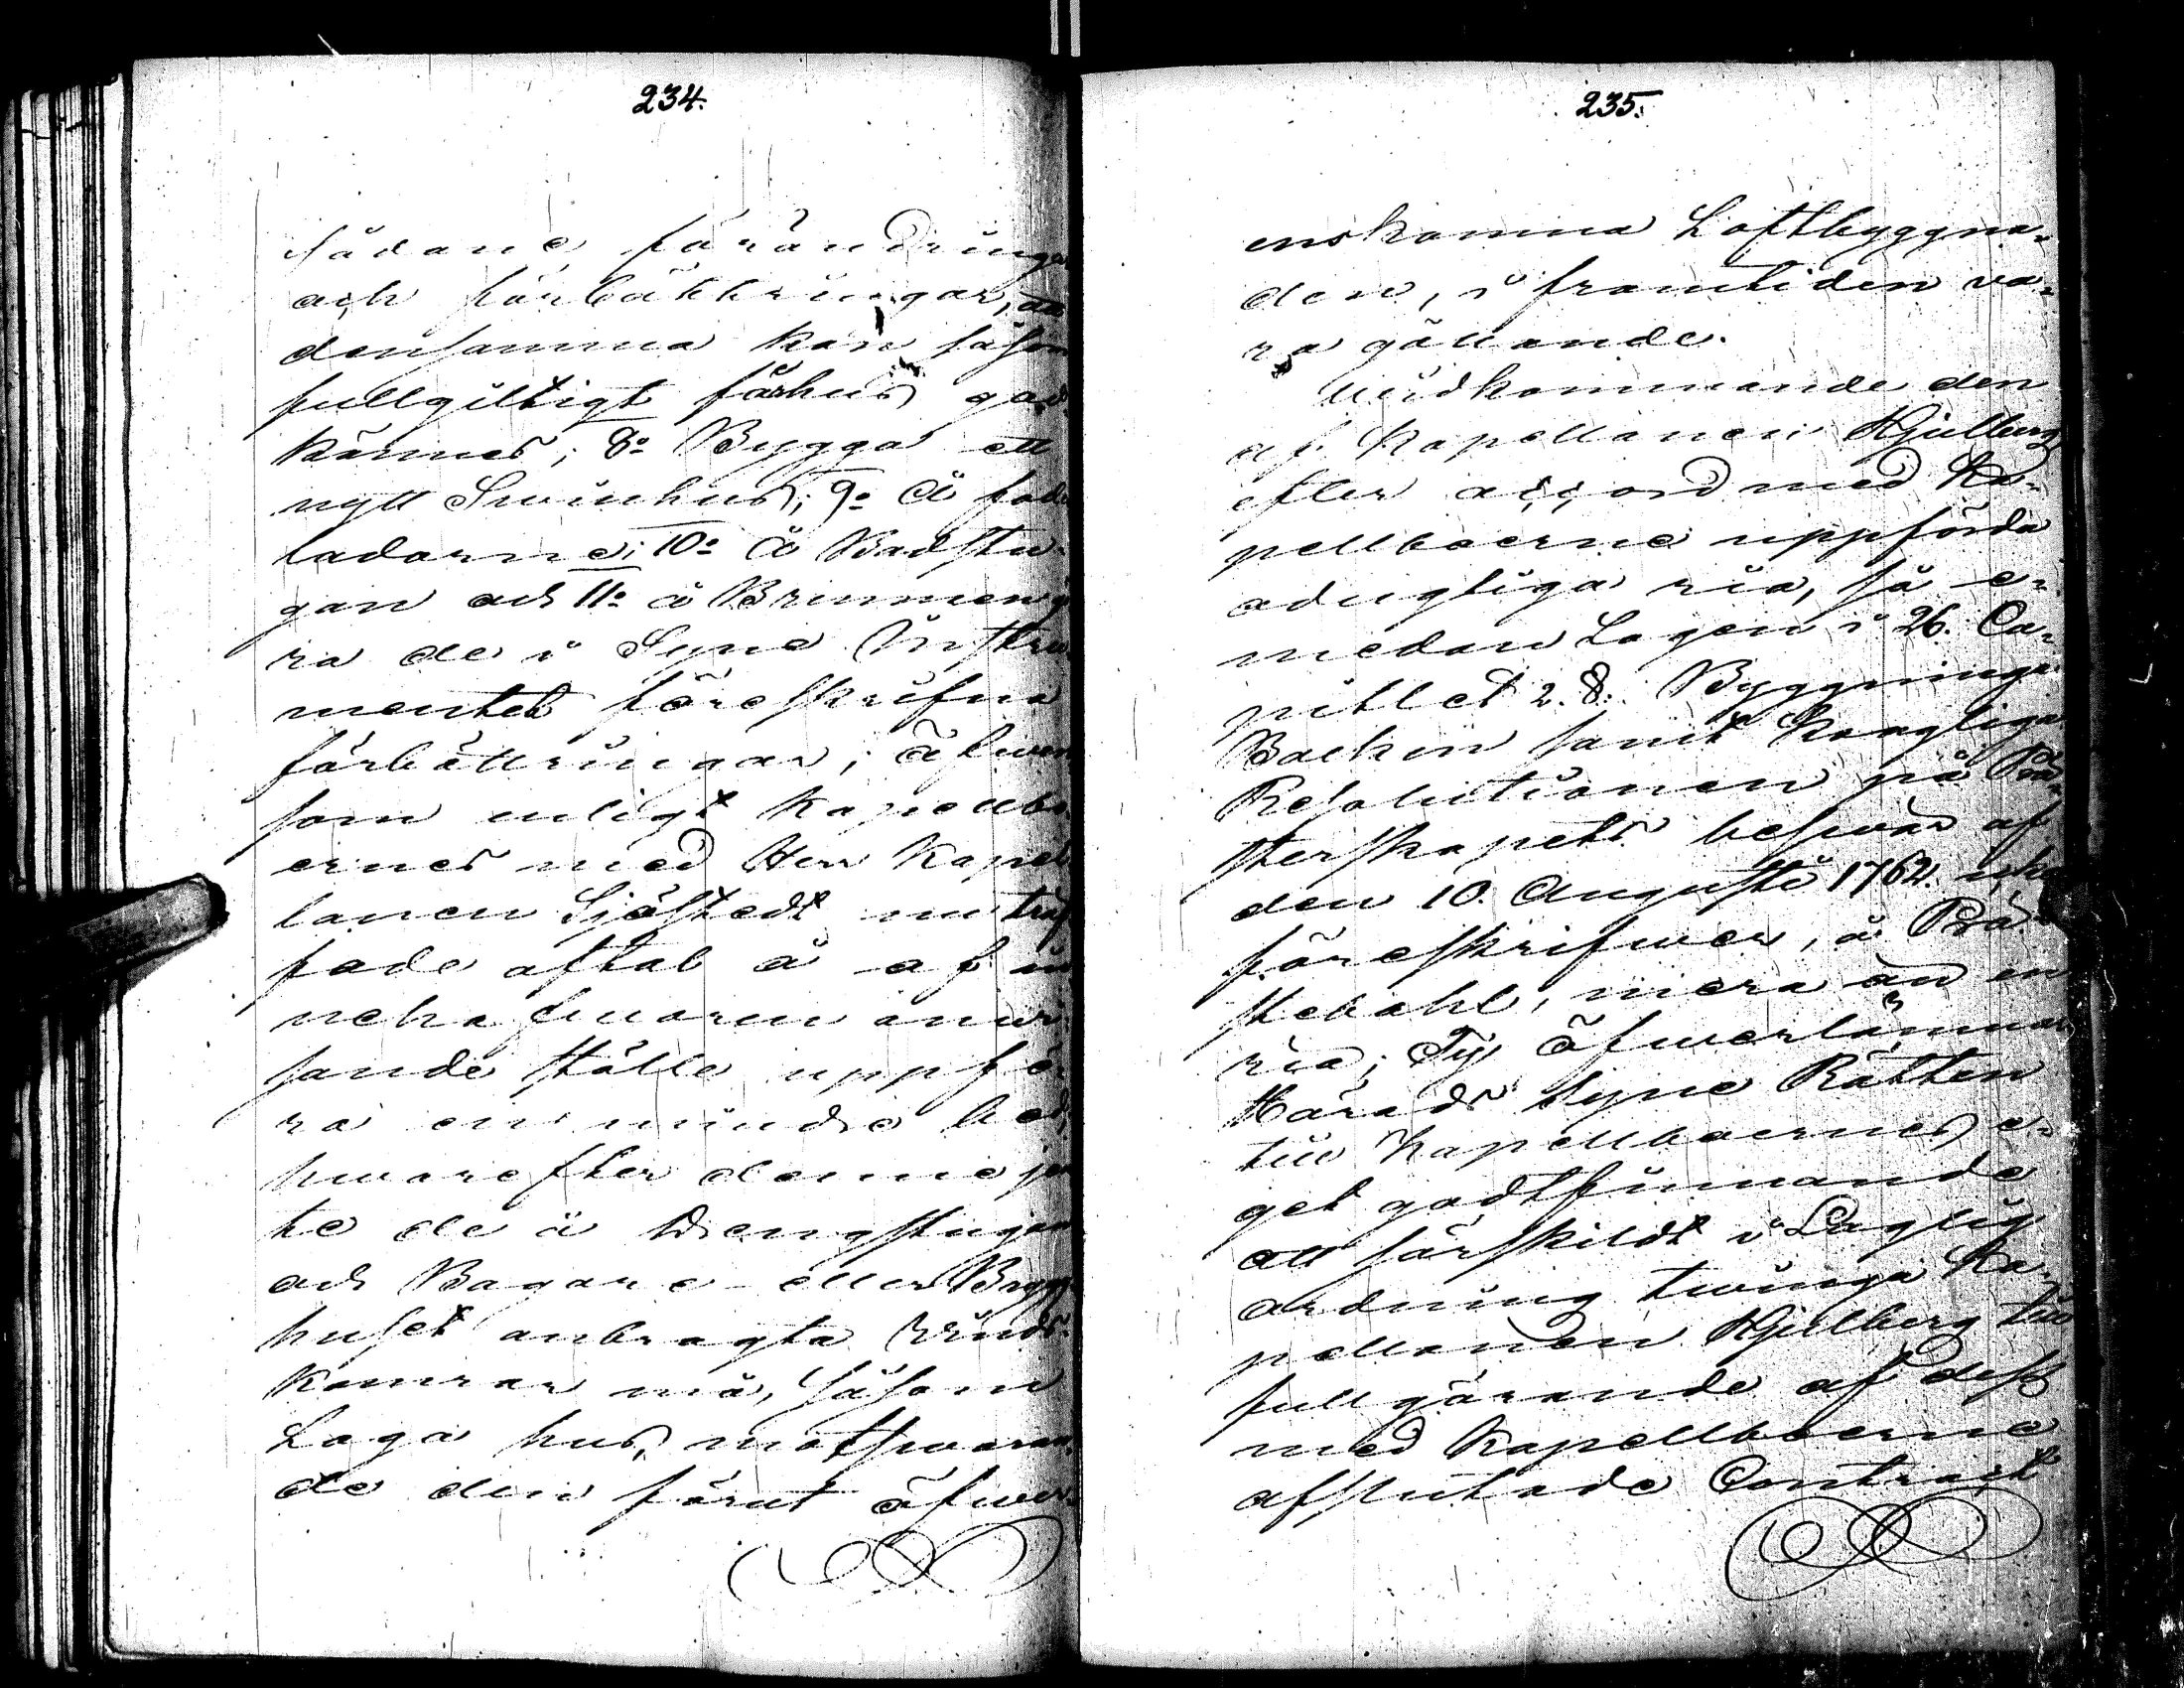 234.
sådane förändringar
och förbättringar, att
densamma kan såsom
fullgiltigt förhus god
kännes; 8:o Bygga ett
nytt Swinhus; 9:o Å fode
ladorne; 10:o Å Badstu-
gan och 11:o å Brunnen gö
ra de i Syne Instru-
mentet föreskrifna
förbättringar; äfwen
som enligt Kapellbo-
ernes med Herr Kapel
lanen Sjöstedt nu träf
fade aftal å af in
nehafwaren anwi-
sande ställe uppfö-
ra en mindre bod,
hwarefter denne jem
te de å Drengstugan
och Bagare- eller Brygg
huset anbragta Winds-
Kamrar må, såsom
Laga hus, motswaran-
de den förut öfwer-
235.
enskomna Loftbyggna-
den, i framtiden va-
ra gällande.
Widkommande den
af Kapellanen Hjulberg
efter accord med Ka-
pellboerne uppförda
odugliga ria, så e-
medan Lagen i 26. Ca-
pitlet 2. §. Byggninga
Balken samt Kongliga
Resolutionen på Prä-
sterskapets beswär af
den 10. Augusti 1762. icke
föreskrifwer, å Prä-
stebohl, mera än en
ria; Ty öfwerlämnar
Härads Syne Rätten
till Kapellboernes e-
get godtfinnande
att särskildt i Laglig
ordning twinga Ka-
pellanen Hjulberg till
fullgörande af dess
med Kapellboerne
afslutade Contract